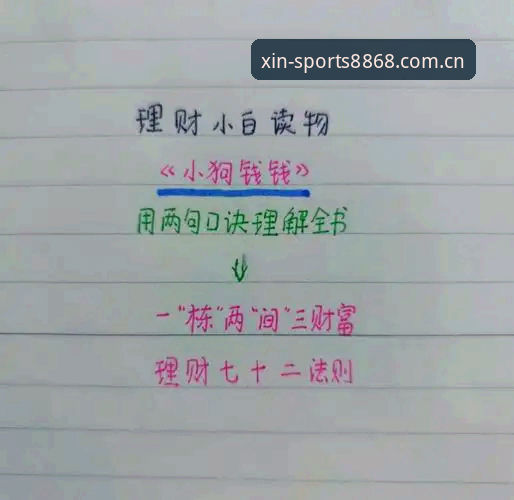 xin-sports8868.com.cn
理财小白读物
《小狗钱钱》
用两句口诀理解全书
一"栋"两"间"三财富
理财七十二法则